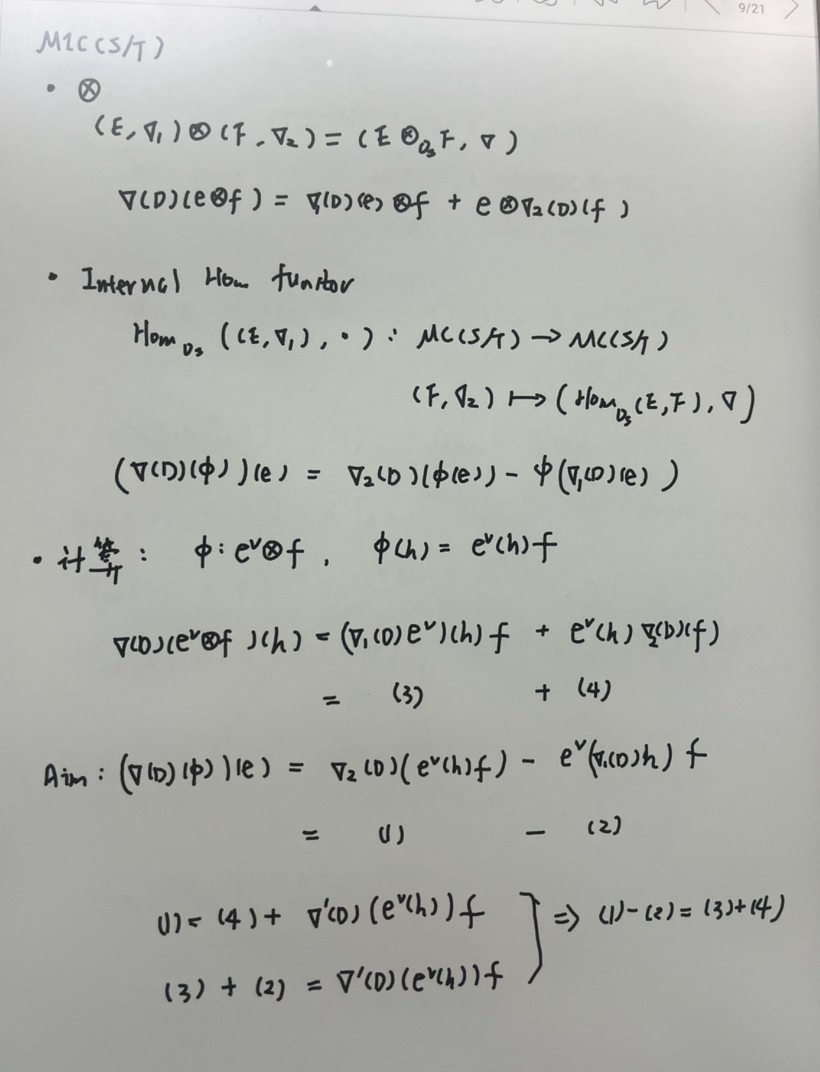 9/21
MIC(S/T)
• ⊗
(E, ∇₁) ⊗ (F, ∇₂) = (E ⊗_{O_S} F, ∇)
∇(D)(e⊗f) = ∇₁(D)(e) ⊗ f + e ⊗ ∇₂(D)(f)
• Internal Hom functor
Hom_{O_S} ((E, ∇₁), •) : MC(S/T) → MC(S/T)
(F, ∇₂) ↦ (Hom_{O_S}(E, F), ∇)
(∇(D)(ϕ))(e) = ∇₂(D)(ϕ(e)) - ϕ(∇₁(D)(e))
• 计算 : ϕ : e^∨⊗f , ϕ(h) = e^∨(h) f
∇(D)(e^∨⊗f)(h) = (∇₁(D)e^∨)(h) f + e^∨(h) ∇₂(D)(f)
= (3) + (4)
Aim : (∇(D)(ϕ))(e) = ∇₂(D)(e^∨(h)f) - e^∨(∇₁(D)h) f
= (1) - (2)
(1) = (4) + ∇'(D)(e^∨(h)) f
(3) + (2) = ∇'(D)(e^∨(h)) f
⇒ (1)-(2) = (3)+(4)